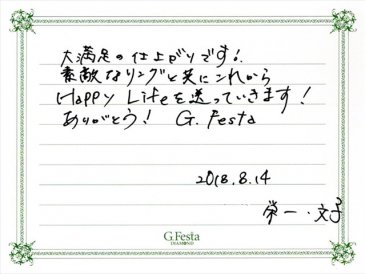 大満足の仕上がりです!
素敵なリングと共にこれから
Happy Lifeを送っていきます!
ありがとう! G. Festa
2018.8.14
栄一・文子
G.Festa
DIAMOND